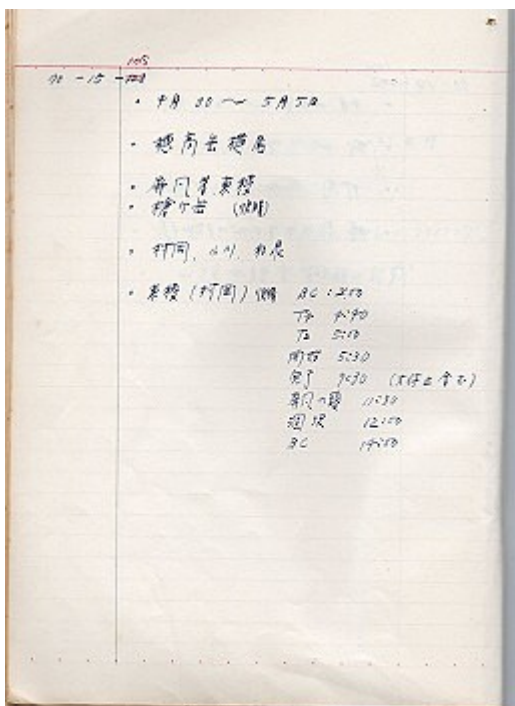 105
70 - 15 -
・4月30 〜 5月5日
・穂高岳横尾
・屏風岩東稜
・槍ヶ岳
・村岡, 小川,
・東稜 (村岡) AC : 2:50
T4 4:40
T2 5:10
開始 5:30
完了 9:30 (大休止含む)
屏風の頭 11:30
涸沢 12:00
BC 14:50